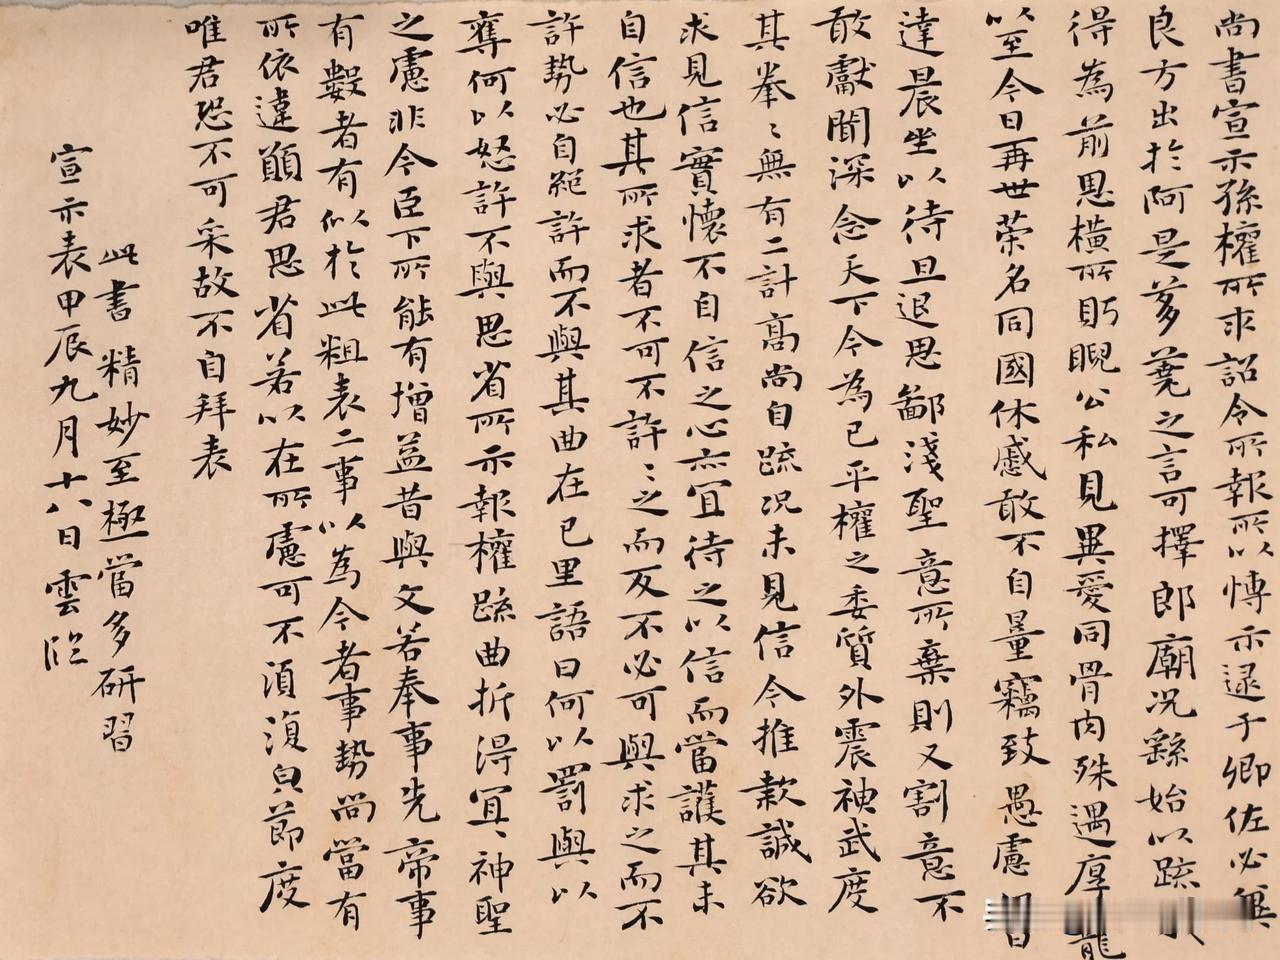 尚書宣示孫權所求詔令所報所以博示逮于卿佐必無
良方出於阿是芻蕘之言可擇郎廟況繇始以疏
得為前恩橫所眄睨公私見異愛同骨肉殊遇厚寵
以至今日再世榮名同國休慼敢不自量竊致愚慮
達晨坐以待旦退思鄙淺聖意所棄則又割意不
敢獻聞深念天下今為已平權之委質外震神武度
其拳〻無有二計高尚自疏況未見信今推款誠欲
求見信實懷不自信之心亦宜待之以信而當護其未
自信也其所求者不可不許〻之而反不必可與求之而不
許勢必自絕許而不與其曲在已里語曰何以罰與以
奪何以怒許不與思省所示報權疏曲折得宜〻神聖
之慮非今臣下所能有增益昔與文若奉事先帝事
有數者有似於此粗表二事以為今者事勢尚當有
所依違願君思省若以在所慮可不須復貟節度
唯君恐不可采故不自拜表
此書精妙至極當多研習
宣示表甲辰九月十八日雲臨